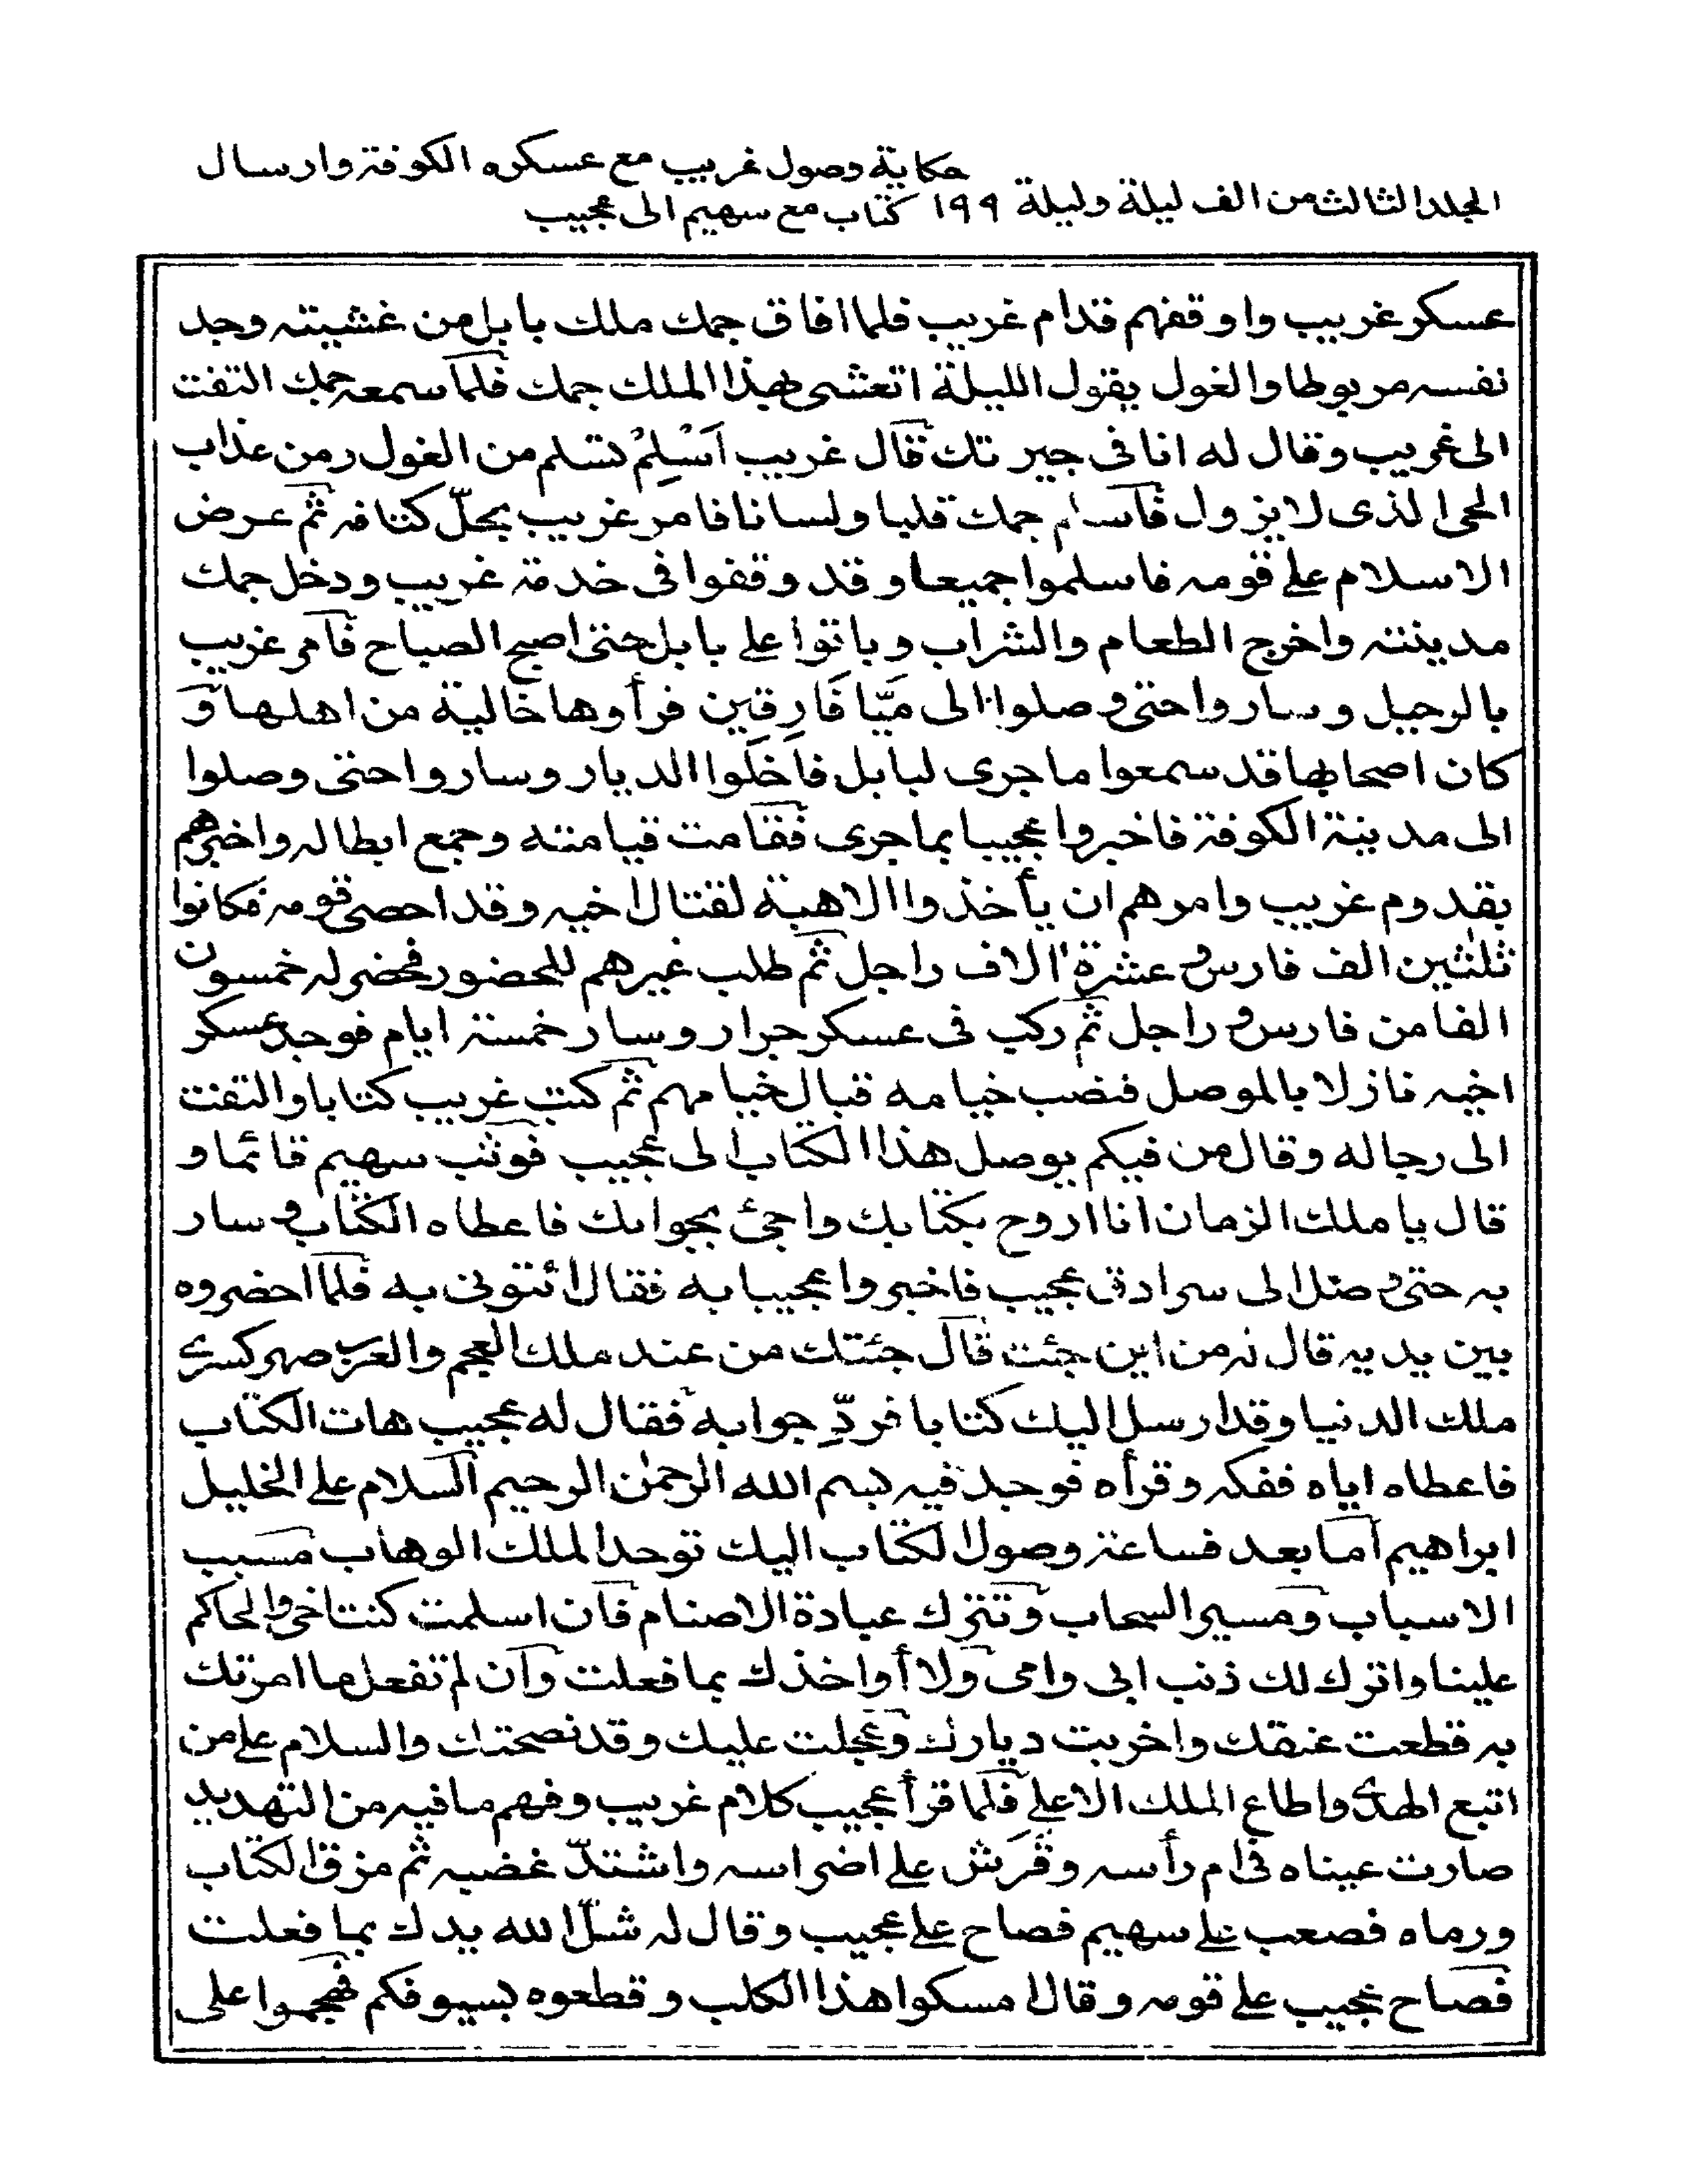 حكاية وصول غريب مع عسكره الكوفة وارسال
المجلد الثالث من الف ليلة وليلة ١٩٩ كتاب مع سهيم الى عجيب
عسكر غريب واوقفهم قدام غريب فلما افاق جمك ملك بابل من غشيته وجد
نفسه مربوطا والغول يقول الليلة اتعشى بهذا الملك جمك فلما سمعه جمك التفت
الى غريب وقال له انا فى جيرتك قال غريب اَسْلِمْ تسلم من الغول ومن عذاب
الحى الذى لا يزول فاسلم جمك قلبا ولسانا فامر غريب بحلّ كتافه ثم عرض
الاسلام على قومه فاسلموا جميعا وقد وقفوا فى خدمة غريب ودخل جمك
مدينته واخرج الطعام والشراب وباتوا على بابل حتى اصبح الصباح فامر غريب
بالرحيل وساروا حتى وصلوا الى مَيّا فَارِقين فرأوها خالية من اهلها و
كان اصحابها قد سمعوا ما جرى لبابل فاخلَوا الديار وساروا حتى وصلوا
الى مدينة الكوفة فاخبروا عجيبا بما جرى فقامت قيامته وجمع ابطاله واخبرهم
بقدوم غريب وامرهم ان يأخذوا الاهبة لقتال اخيه وقد احصى قومه فكانوا
ثلثين الف فارس و عشرة الاف راجل ثم طلب غيرهم للحضور فحضر له خمسون
الفا من فارس و راجل ثم ركب فى عسكر جرار وسار خمسة ايام فوجد عسكر
اخيه نازلا بالموصل فنصب خيامه قبال خيامهم ثم كتب غريب كتابا والتفت
الى رجاله وقال من فيكم يوصل هذا الكتاب الى عجيب فوثب سهيم قائما و
قال يا ملك الزمان انا اروح بكتابك واجئ بجوابك فاعطاه الكتاب و سار
به حتى وصل الى سرادق عجيب فاخبروا عجيبا به فقال ائتونى به فلما احضروه
بين يديه قال له من اين جئت قال جئتك من عند ملك العجم والعرب صهر كسرى
ملك الدنيا وقد ارسل اليك كتابا فردّ جوابه فقال له عجيب هات الكتاب
فاعطاه اياه ففكه وقرأه فوجد فيه بسم الله الرحمٰن الرحيم السلام على الخليل
ابراهيم اما بعد فساعة وصول الكتاب اليك توحد الملك الوهاب مسبب
الاسباب ومسير السحاب وتترك عبادة الاصنام فان اسلمت كنت اخى والحاكم
علينا واترك لك ذنب ابى وامى ولا أواخذك بما فعلت وان لم تفعل ما امرتك
به قطعت عنقك واخربت ديارك وعجلت عليك وقد نصحتك والسلام على من
اتبع الهدى واطاع الملك الاعلى فلما قرأ عجيب كلام غريب وفهم ما فيه من التهديد
صارت عيناه فى ام رأسه وقَرَش على اضراسه واشتدّ غضبه ثم مزق الكتاب
ورماه فصعب على سهيم فصاح على عجيب وقال له شلّ الله يدك بما فعلت
فصاح عجيب على قومه وقال امسكوا هذا الكلب وقطعوه بسيوفكم فهجموا على